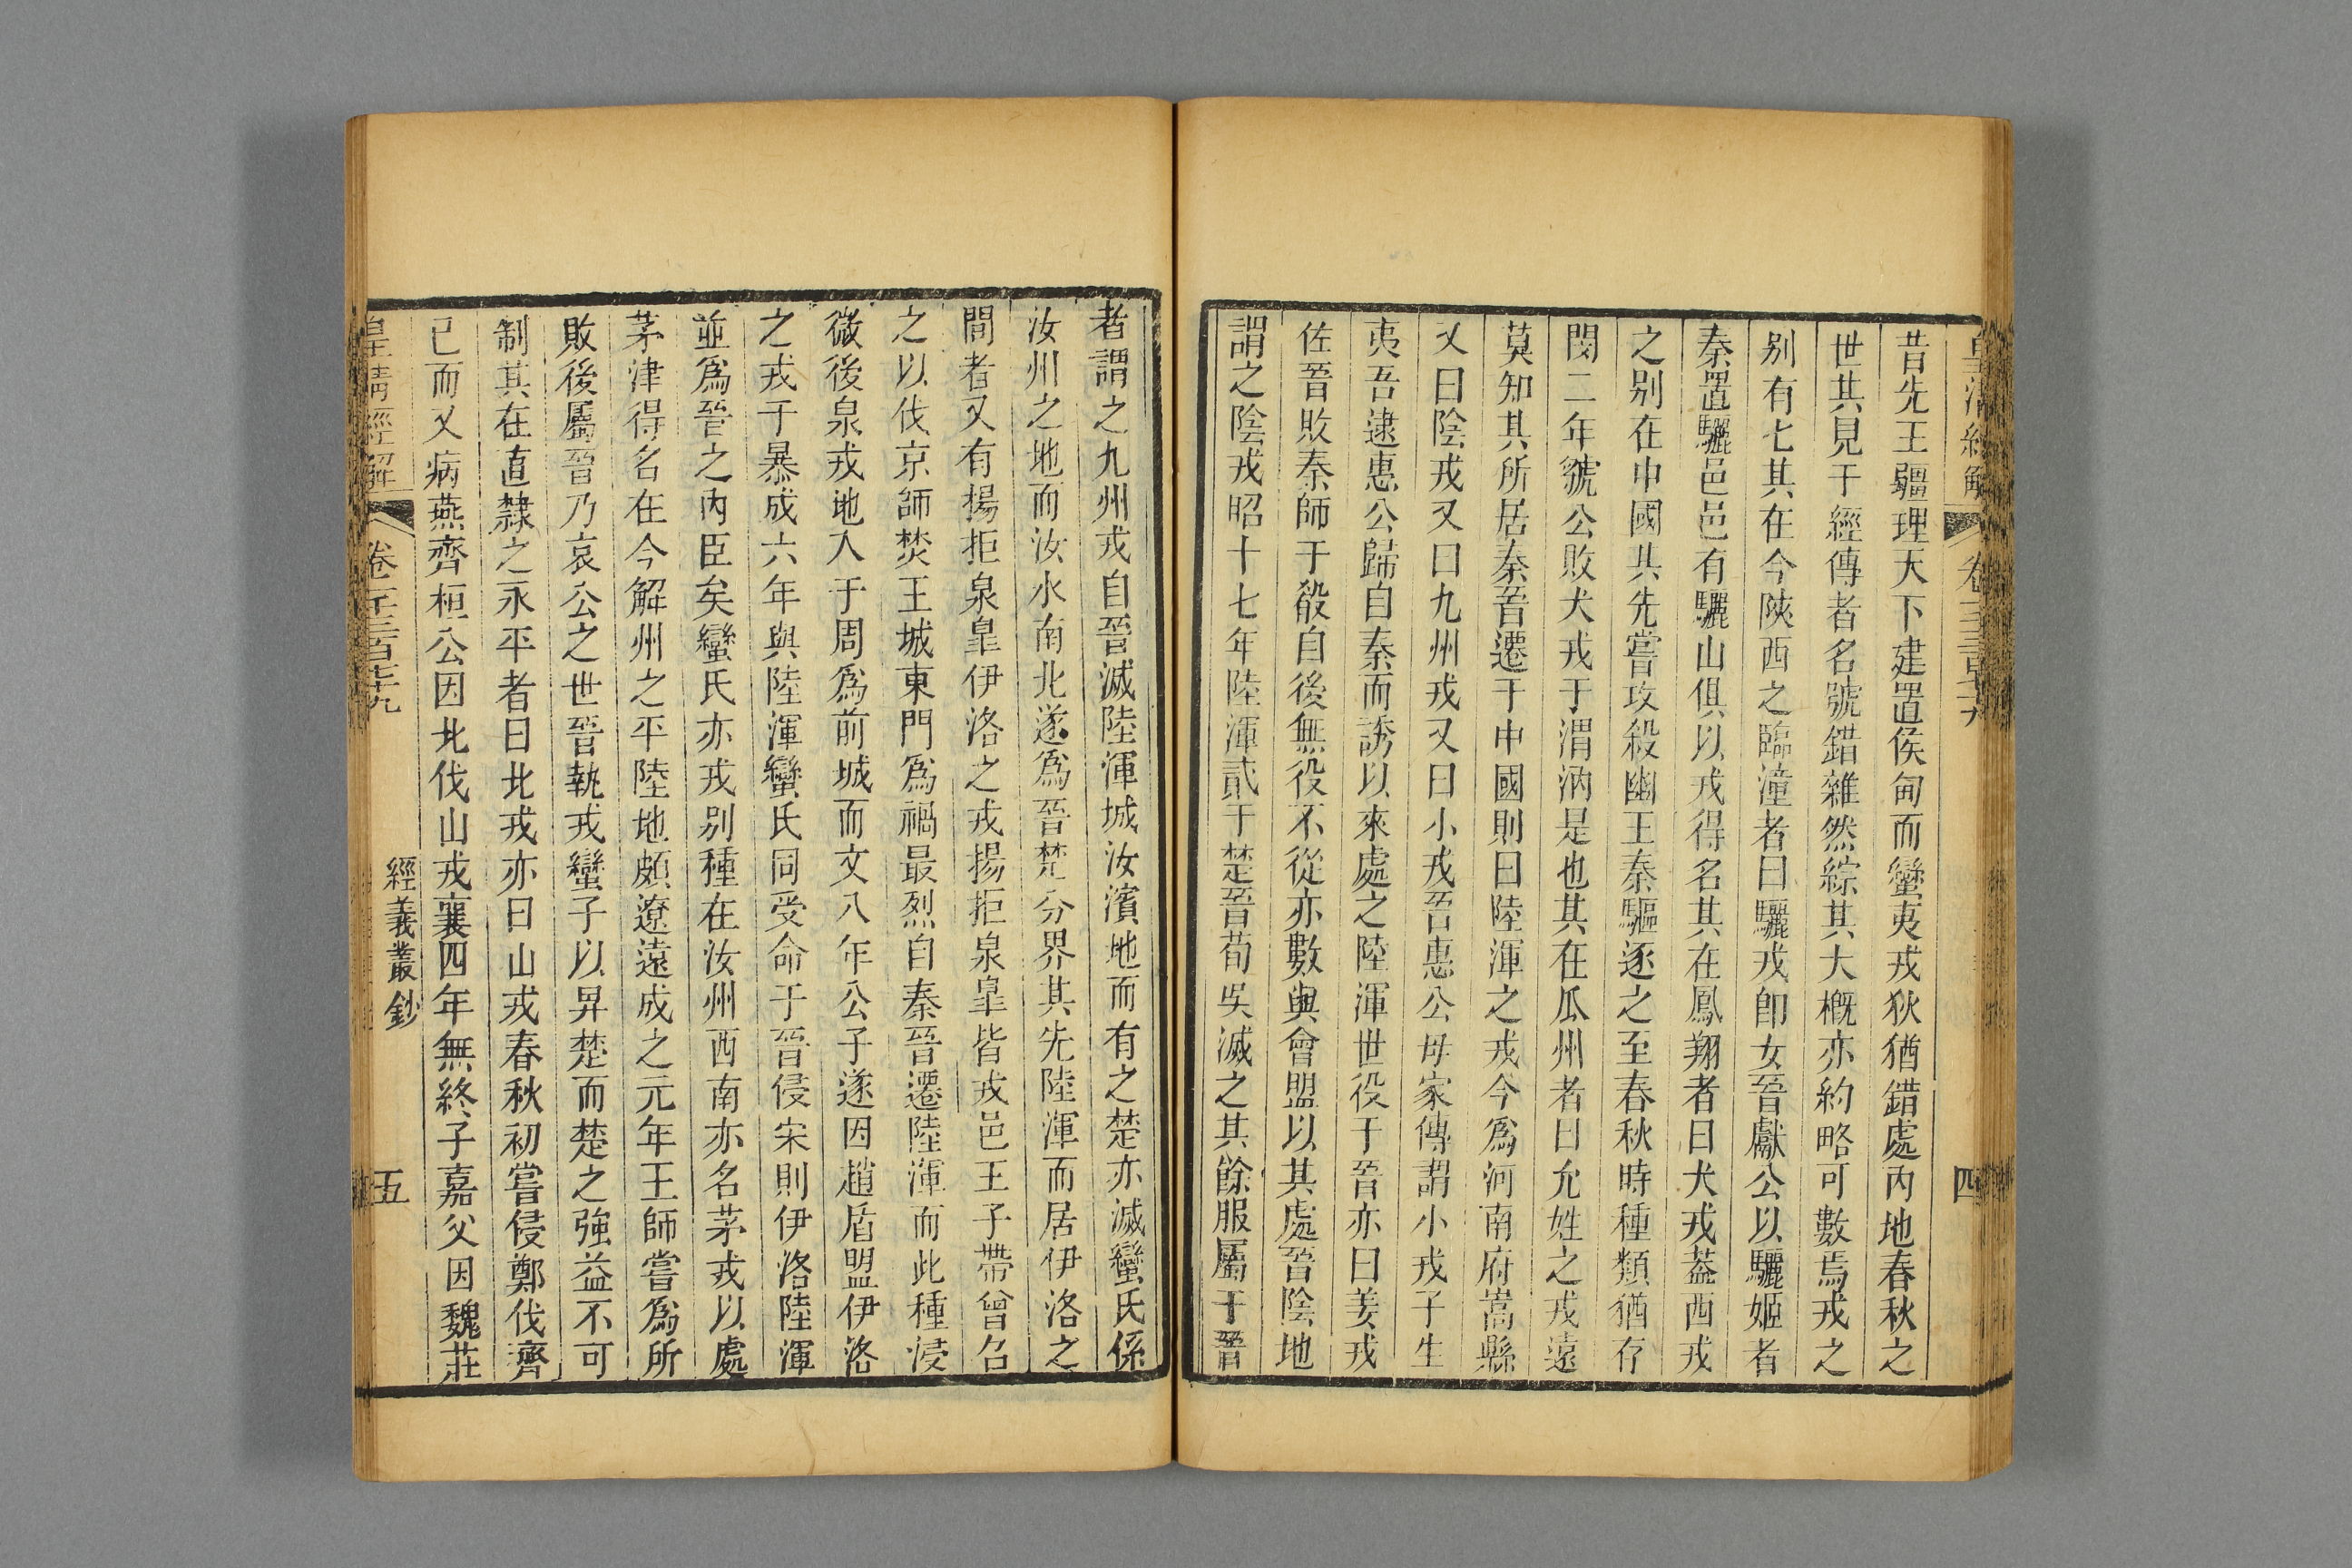 皇清經解 卷一千三百七十九 四
昔先王疆理天下建置侯甸而蠻夷戎狄猶錯處內地春秋之
世其見于經傳者名號錯雜然綜其大槪亦約略可數焉戎之
別有七其在今陝西之臨潼者曰驪戎卽女晉獻公以驪姬者
秦置驪邑邑有驪山俱以戎得名其在鳳翔者曰犬戎葢西戎
之別在中國其先嘗攻殺幽王秦驅逐之至春秋時種類猶存
閔二年虢公敗犬戎于渭汭是也其在瓜州者曰允姓之戎遠
莫知其所居秦晉遷于中國則曰陸渾之戎今爲河南府嵩縣
又曰陰戎又曰九州戎又曰小戎晉惠公母家傳謂小戎子生
夷吾逮惠公歸自秦而誘以來處之陸渾世役于晉亦曰姜戎
佐晉敗秦師于殽自後無役不從亦數與會盟以其處晉陰地
謂之陰戎昭十七年陸渾貳于楚晉荀吳滅之其餘服屬于晉
者謂之九州戎自晉滅陸渾城汝濱地而有之楚亦滅蠻氏係
汝州之地而汝水南北遂爲晉楚分界其先陸渾而居伊洛之
間者又有揚拒泉皐伊洛之戎揚拒泉皐皆戎邑王子帶曾召
之以伐京師焚王城東門爲禍最烈自秦晉遷陸渾而此種浸
微後泉戎地入于周爲前城而文八年公子遂因趙盾盟伊洛
之戎于暴成六年與陸渾蠻氏同受命于晉侵宋則伊洛陸渾
並爲晉之內臣矣蠻氏亦戎別種在汝州西南亦名茅戎以處
茅津得名在今解州之平陸地頗遼遠成之元年王師嘗爲所
敗後屬晉乃哀公之世晉執戎蠻子以昇楚而楚之強益不可
制其在直隸之永平者曰北戎亦曰山戎春秋初嘗侵鄭伐齊
已而又病燕齊桓公因北伐山戎襄四年無終子嘉父因魏莊
皇清經解 卷一千三百七十九 經義叢鈔 五